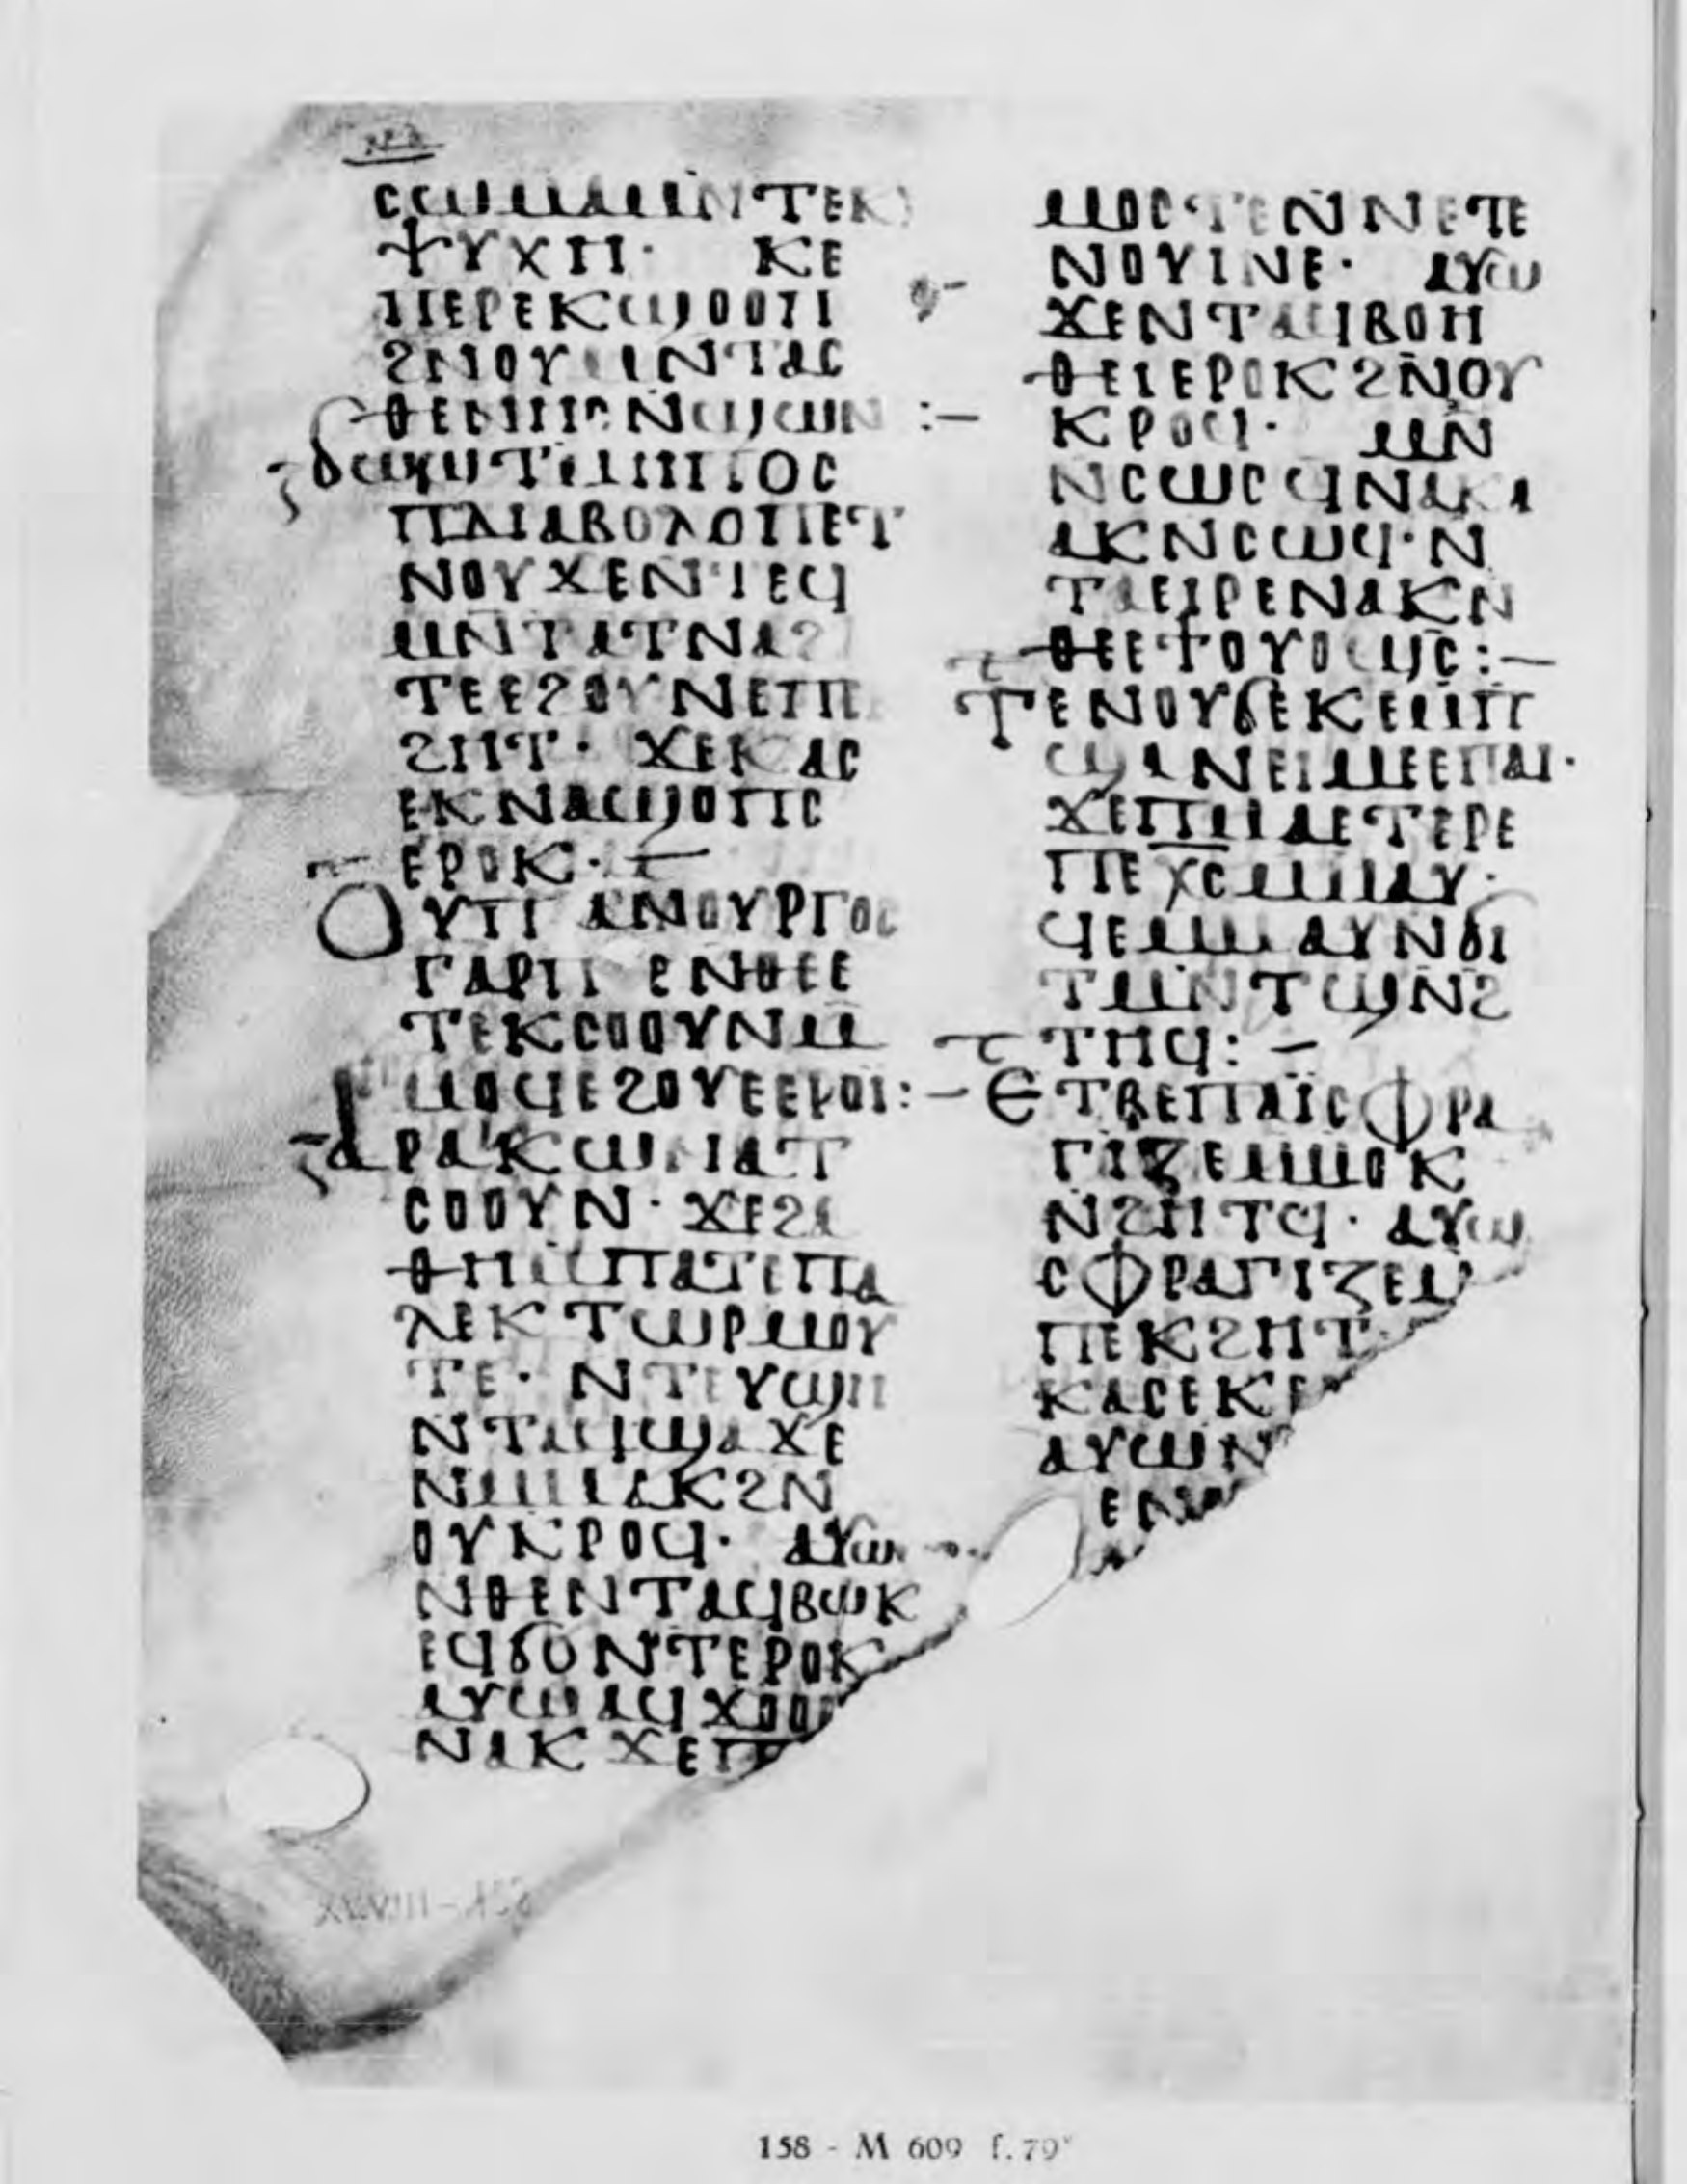 ⲥⲱⲙⲁⲙⲛⲧⲉⲕ
ⲯⲩⲭⲏ· ⲕⲉ
ⲡⲉⲣⲉⲕϣⲟⲟⲡ
ϩⲛⲟⲩ
ⲡⲇⲓⲁⲃⲟⲗⲟⲥⲡⲉⲧ
ⲛⲟⲩϫⲉⲛⲧⲉϥ
ⲙⲛⲧⲁⲧⲛⲁϩ
ⲧⲉⲉϩⲟⲩⲛⲉⲡⲉⲕ
ϩⲏⲧ· ϫⲉⲕⲁⲥ
ⲉⲕⲛⲁϣⲟⲡⲥ
ⲉⲣⲟⲕ·
ⲟⲩⲡⲁⲛⲟⲩⲣⲅⲟⲥ
ⲅⲁⲣⲡⲉ ⲛⲑⲉⲉ
ⲧⲉⲕⲥⲟⲟⲩⲛⲙ̄
ⲙⲟϥⲉϩⲟⲩⲉⲉⲣⲟⲓ:–
ⲁⲣⲁⲕⲱ
ⲥⲟⲟⲩⲛ· ϫⲉϩⲁ
ⲑⲏⲙⲡⲁⲧⲉⲡⲁ
ⲗⲉⲕⲧⲱⲣⲙⲟⲩ
ⲧⲉ· ⲛⲧⲉⲩϣⲏ
ⲛⲧⲁϥϣⲁϫⲉ
ⲛⲙⲙⲁⲕϩⲛ
ⲟⲩⲕⲣⲟϥ· ⲁⲩⲱ
ⲛⲑⲉⲛⲧⲁϥⲃⲱⲕ
ⲉϥϭⲟⲛⲧⲉⲣⲟⲕ
ⲁⲩⲱⲁϥϫⲟⲟ
ⲛⲁⲕϫⲉⲡ
ⲙⲟⲥⲧⲉⲛⲛⲉⲧⲉ
ⲛⲟⲩⲓⲛⲉ· ⲁⲩⲱ
ϫⲉⲛⲧⲁϥⲃⲟⲏ
ⲑⲉⲓⲉⲣⲟⲕϩⲛⲟⲩ
ⲕⲣⲟϥ· ⲙⲛ
ⲛⲥⲱⲥϥⲛⲁⲕⲁ
ⲁⲕⲛⲥⲱϥ·ⲛ
ⲧⲁⲉⲓⲣⲉⲛⲁⲕⲛ
ⲑⲉⲉϯⲟⲩⲟϣⲥ̄:–
ⲧⲉⲛⲟⲩϭⲉⲕⲉⲓⲙⲉ
ϣⲁⲛⲉⲓⲙⲉⲉⲡⲁⲓ·
ϫⲉⲡⲙⲁⲉⲧⲉⲣⲉ
ⲡⲉⲭⲥⲙⲙⲁⲩ·
ϥⲉⲙⲙⲁⲩⲛϭⲓ
ⲧⲙⲛⲧϣⲛϩ
ⲧⲏϥ:–
ⲉⲧⲃⲉⲡⲁⲓ̈ⲥⲫⲣⲁ
ⲅⲓⲍⲉⲙⲙⲟⲕ
ⲛϩⲏⲧϥ· ⲁⲩⲱ
ⲥⲫⲣⲁⲅⲓⲍⲉⲙ
ⲡⲉⲕϩⲏⲧ·
ⲕⲁⲥⲉⲕⲉ
ⲁⲩⲱⲛ
ⲉⲛ
158 - M 609 f. 79ᵛ